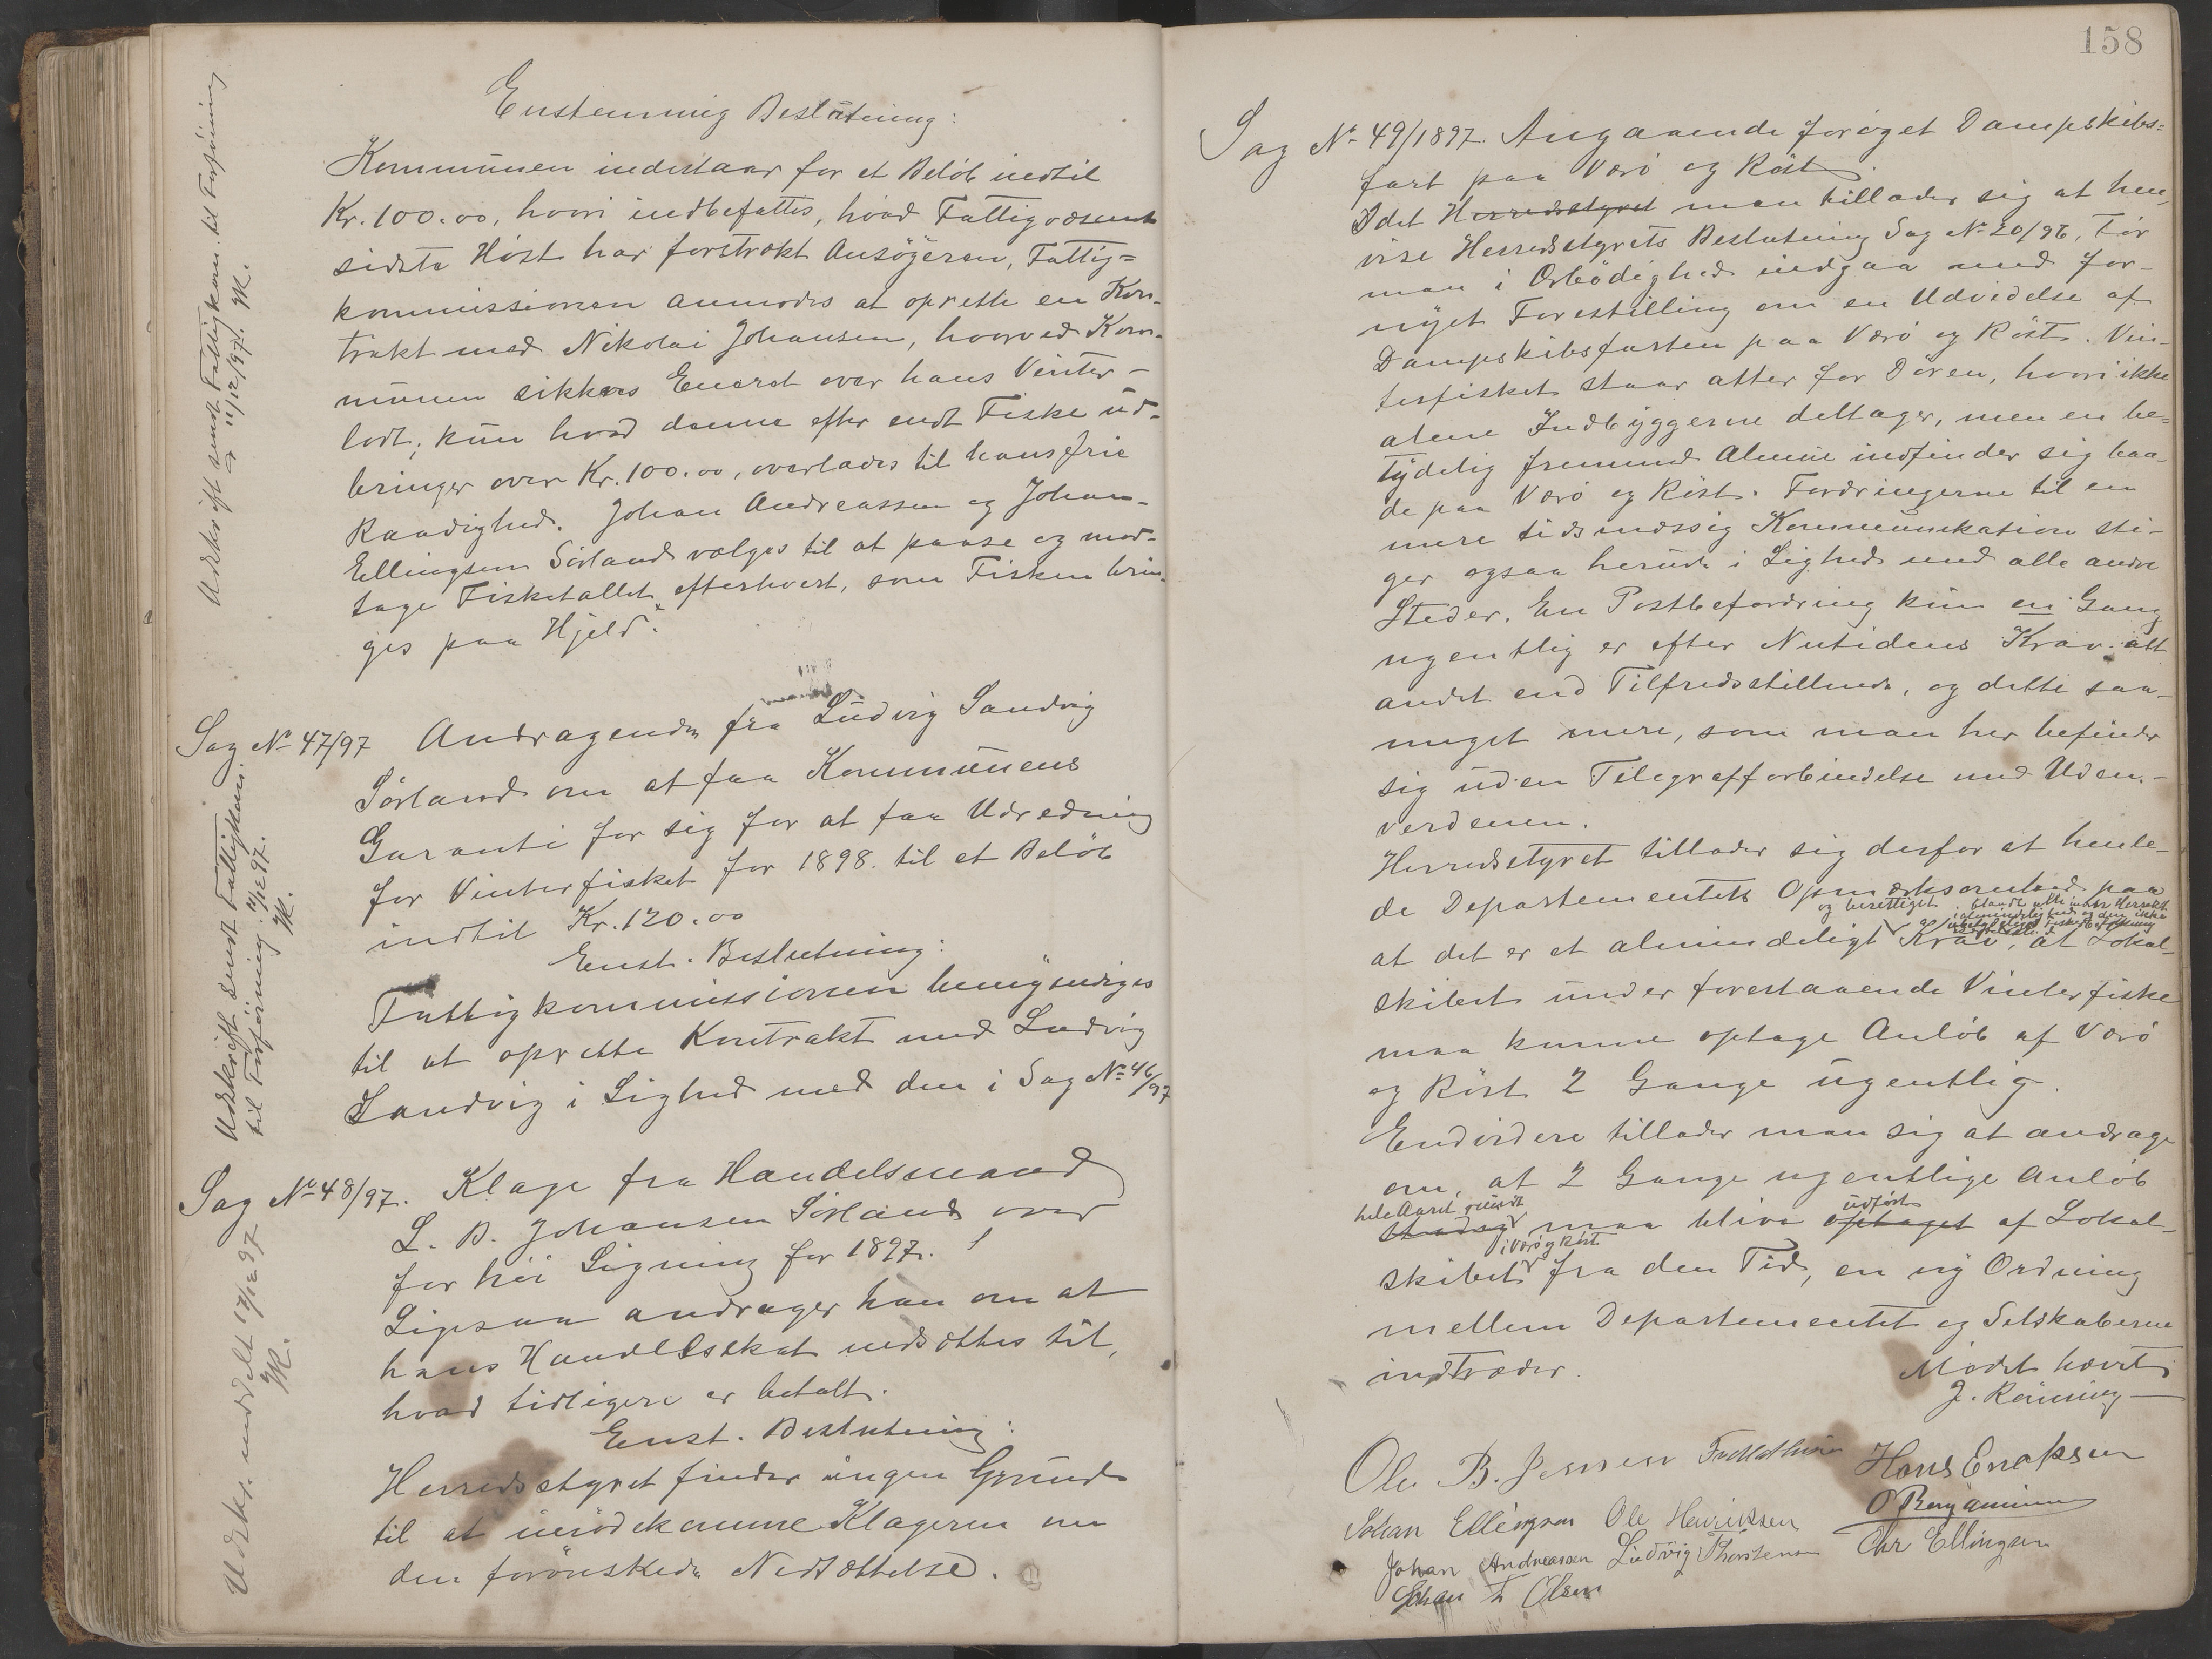 Enstemmig Beslutning:
Kommunen indestaar for et Beløb indtil
Kr. 100.00, hvori indbefattes, hvad Fattigvæsenet
sidste Høst har forstrakt Ansøgeren, Fattig=
kommissionen anmodes at oprette en Kon-
trakt med Nikolai Johansen, hvorved Kom-
munen sikkres Eneret over hans Vinter-
lodt; kun hvad denne efter endt Fiske ud-
bringer over Kr. 100.00, overlades til hans frie
Raadighed. Johan Andreassen og Johan
Ellingsen Sørland vælges til at paase og mod-
tage Fisketallet efterhvert, som Fisken brin-
ges paa Hjeld."
Udskrift sendt Fattigkom. til Forføining
11/12/97. JR.
Sag No 47/97 Andragende fra Ludvig Sandvig
Sørland om at faa Kommunens
Garanti for sig for at faa Udredning
for Vinterfisket for 1898. til et Beløb
indtil Kr. 120.00
Enst. Beslutning:
Fattigkommissionen bemyndiges
til at oprette Kontrakt med Ludvig
Sandvig i Lighed med den i Sag No 46/97
Udskrift sendt Fattigkom.
til Forføining. 11/12 97.
JR.
Sag No 48/97. Klage fra Handelsmand
L. B. Johansen Sørland over
for høi Ligning for 1897.
Ligesaa andrager han om at
hans Handelsskat nedsættes til,
hvad tidligere er betalt.
Enst. Beslutning:
Herredsstyret finder ingen Grund
til at imødekomme Klageren om
den forønskede Nedsættelse.
Udskr. meddelt 17/12 97
JR.
158
Sag No 49/1897. Angaaende forøget Dampskibs=
fart paa Værø og Røst.
Idet Herredsstyret man tillader sig at hen-
vise Herredsstyrets Beslutning Sag No 20/96, Tør
man i Ærbødighed indgaa med for-
nyet Forestilling om en Udvidelse af
Dampskibsfarten paa Værø og Røst. Vin-
terfisket staar atter for Døren, hvori ikke
alene Indbyggerne deltager, men en be-
tydelig fremmed Almue indfinder sig baa-
de paa Værø og Røst. Fordringerne til en
mere tidsmæssig Kommunikation sti-
ger ogsaa herude i Lighed med alle andre
Steder. En Postbefordring kun en Gang
ugentlig er efter Nutidens Krav alt
andet end Tilfredsstillende, og dette saa-
meget mere, som man her befinder
sig uden Telegrafforbindelse med Uden-
verdenen.
Herredsstyret tillader sig derfor at henle-
de Departementets Opmærksomhed paa
og berettiget
at det er et almindeligt Krav, at Lokal-
skibet under forestaaende Vinterfiske
maa kunne optage Anløb af Værø
og Røst 2 Gange ugentlig.
Endvidere tillader man sig at andrage
om, at 2 Gange ugentlige Anløb
hele Aaret rundt udført
maa blive optaget af Lokal-
i Værø og Røst
skibet fra den Tid, en ny Ordning
mellem Departementet og Selskaberne
indtræder.
Mødet hævet
J. Rønning
Ole B. Jensen Hans Enoksen
Johan Ellingsen Ole Henriksen O Benjaminsen
Johan Andreassen Ludvig Thorstensen Chr Ellingsen
Johan Olsen